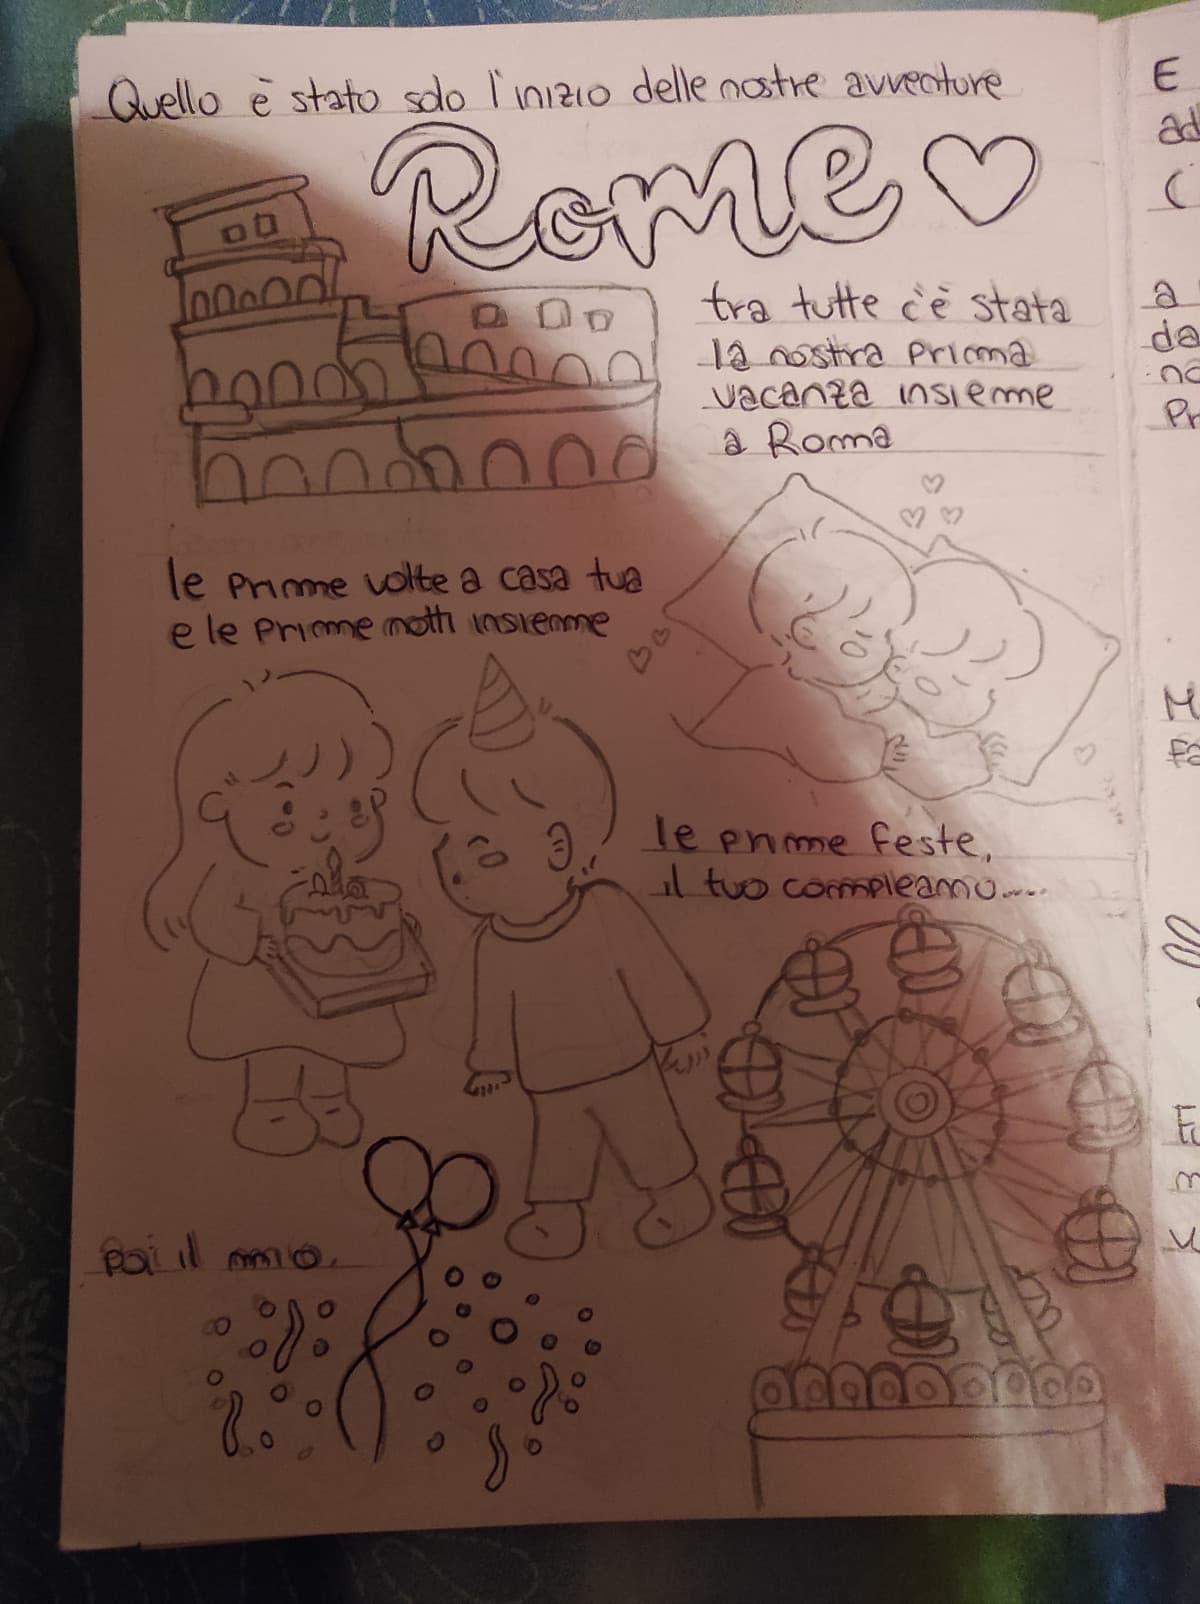 Quello è stato solo l'inizio delle nostre avventure
Rome
tra tutte c'è stata
la nostra prima
vacanza insieme
a Roma
le prime volte a casa tua
e le prime notti insieme
le prime feste,
il tuo compleanno.....
poi il mio.
E
ad
C
a
da
no
Pr
M
Fa